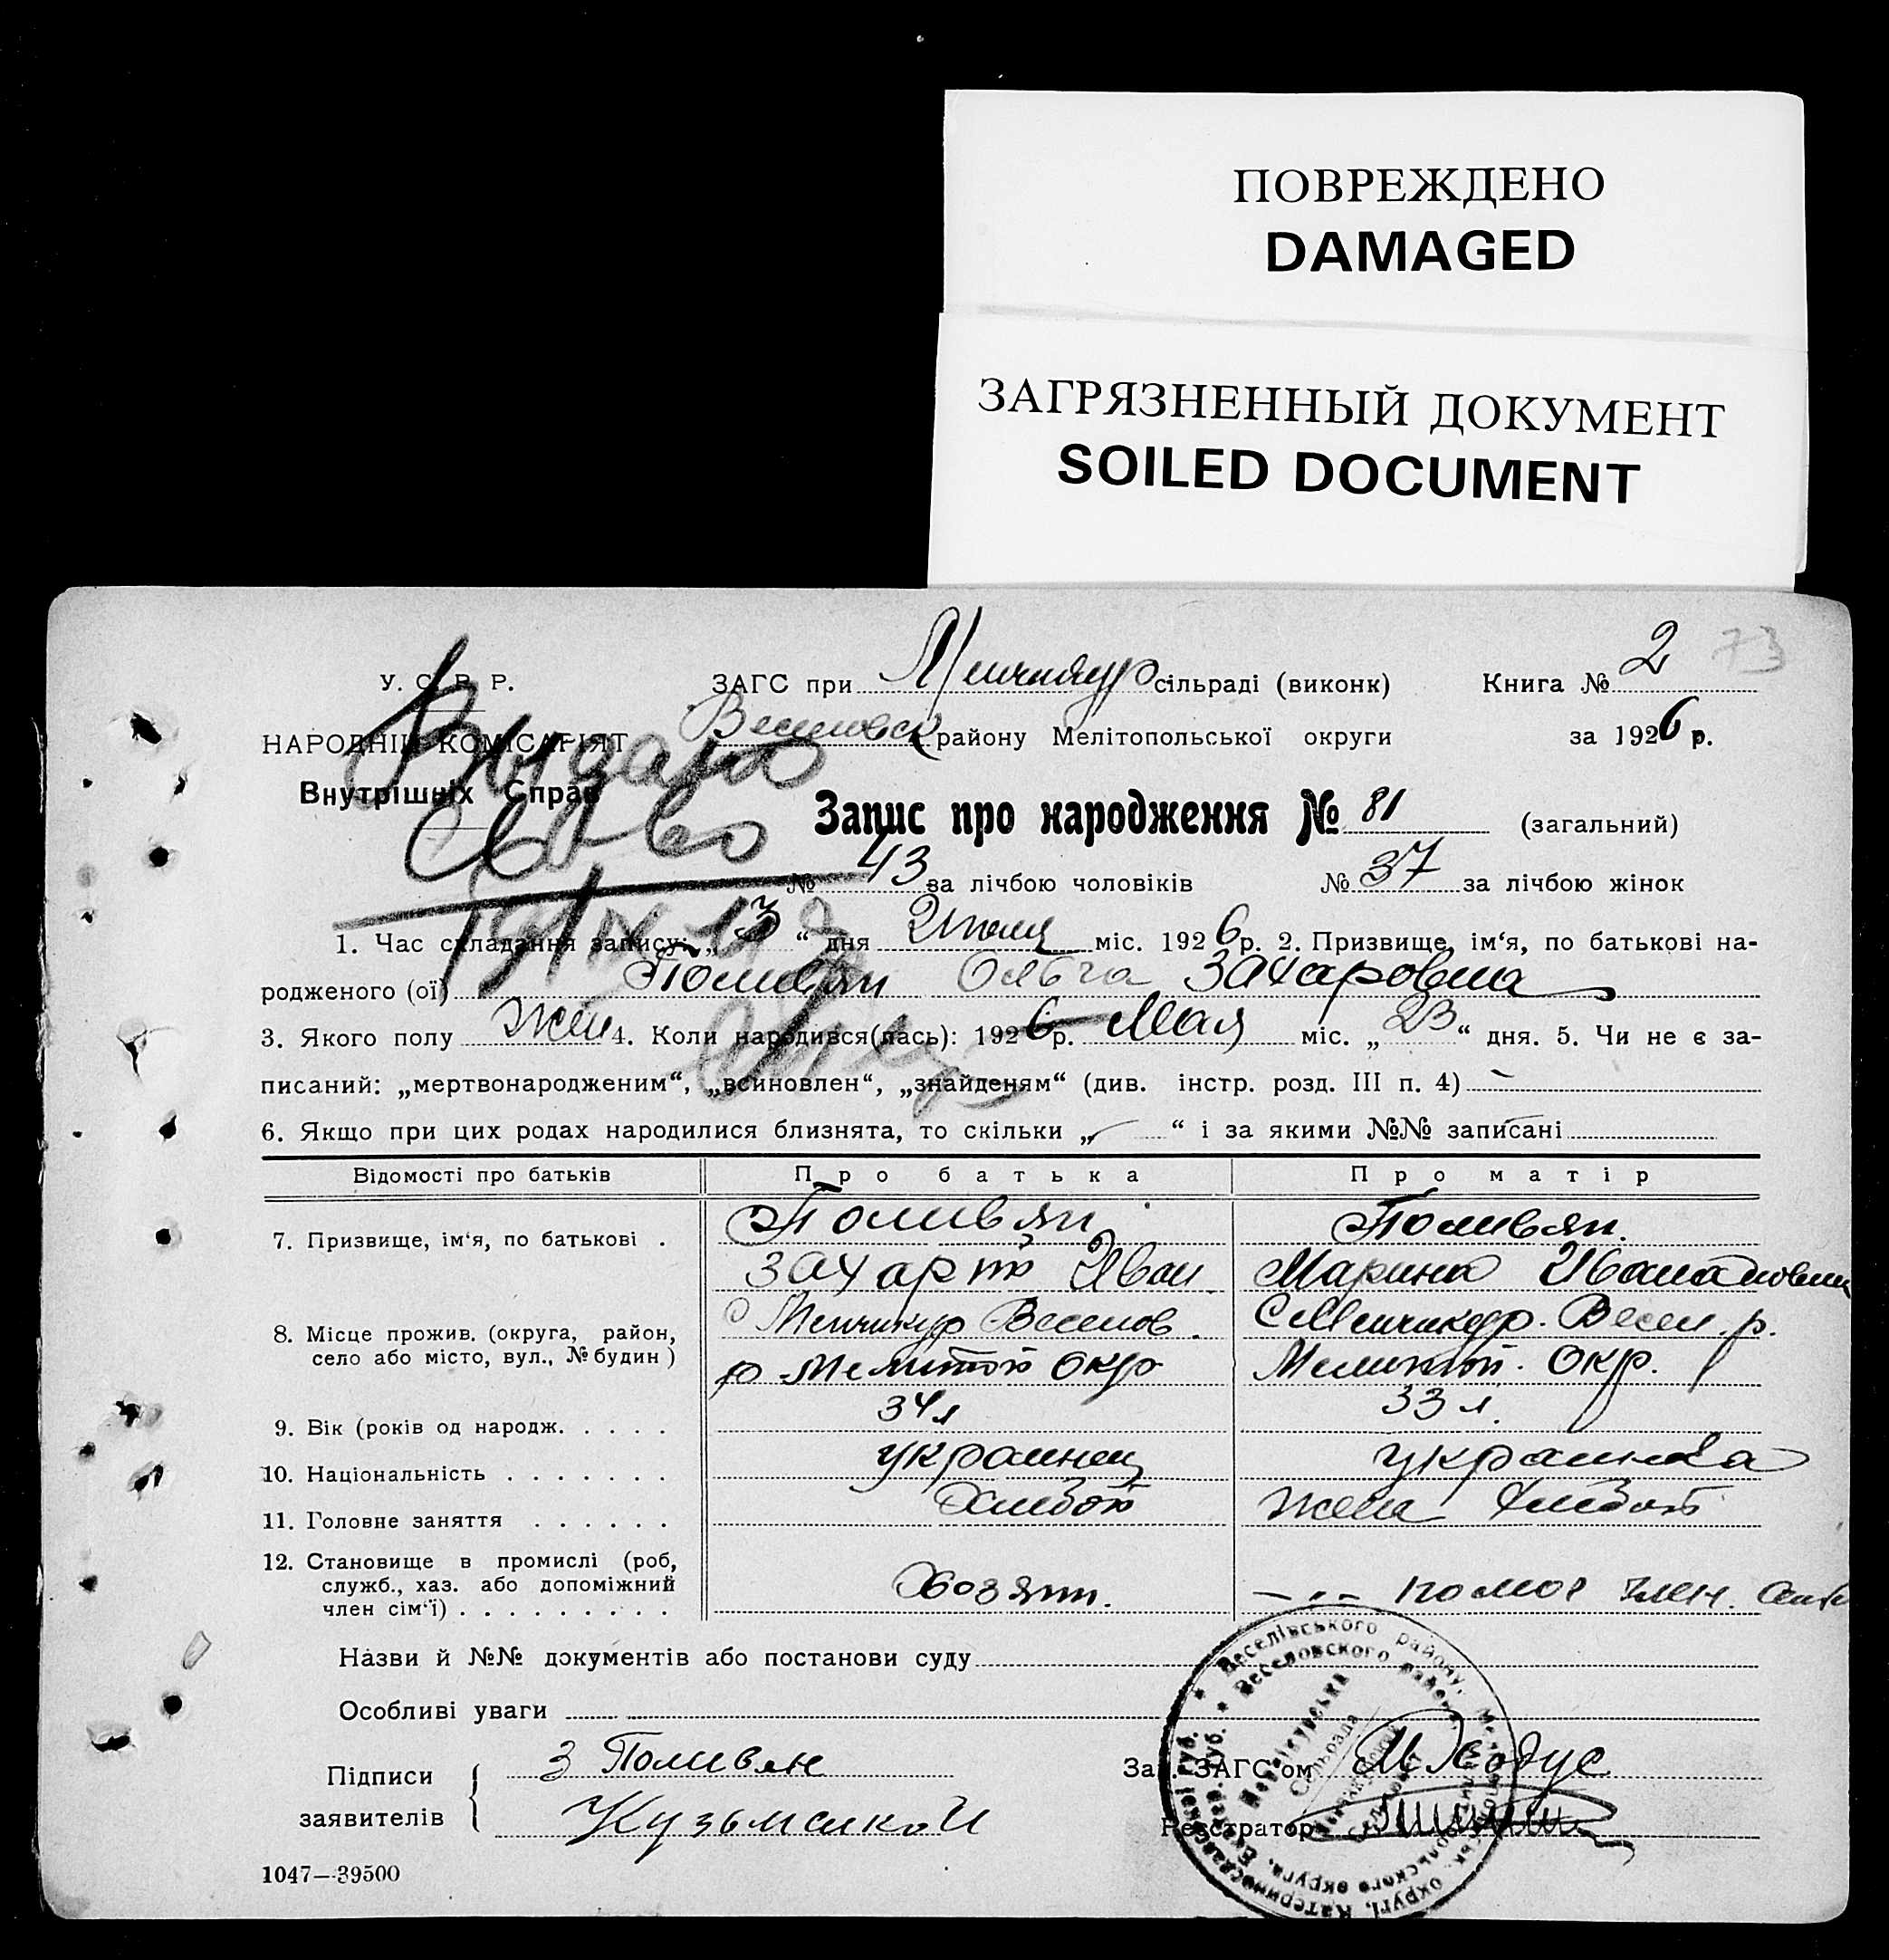 ПОВРЕЖДЕНО
DAMAGED
ЗАГРЯЗНЕННЫЙ ДОКУМЕНТ
SOILED DOCUMENT
У. С. Р. Р. ЗАГС при Менчикур сільраді (виконк) Книга № 2 73
НАРОДНІЙ КОМІСАРІЯТ Веселовск району Мелітопольської округи за 1926 р.
Выдано
Внутрішніх Справ
Св-во
Запис про народження № 81 (загальний)
№ 43 за лічбою чоловіків № 37 за лічбою жінок
1. Час складання запису: „13“ дня Июля міс. 1926 р. 2. Призвище, ім‘я, по батькові на-
родженого (ої) Поливян Ольга Захаровна
3. Якого полу Жен 4. Коли народився(лась): 1926 р. Мая міс. „23“ дня. 5. Чи не є за-
писаний: „мертвонародженим“, „всиновлен“, „знайденям“ (див. інстр. розд. III п. 4) –
6. Якщо при цих родах народилися близнята, то скільки „ “ і за якими №№ записані
Відомості про батьків Про батька Про матір
7. Призвище, ім‘я, по батькові . Поливян Поливян.
Захарій Иван. Марина
8. Місце прожив. (округа, район, с Менчикур Веселов. С Менчикур. Весел. р.
село або місто, вул., № будин) р Мелитоп окр Мелитоп. Окр.
9. Вік (років од народж. . . . . 34 л 33 л.
10. Національність . . . . . . . украинец украинка
11. Головне заняття . . . . . . Хлебоп Жена Хлебоп
12. Становище в промислі (роб,
служб., хаз. або допоміжний Хозяин. – „ – помог член. семьи
член сім‘ї) . . . . . . . . .
Назви й №№ документів або постанови суду
Особливі уваги
Підписи З Поливян Зав. ЗАГС‘ом
заявителів Кузьменко И Реєстратор
Веселівського району, Мелітопольськ. округи, Катеринославської губ.
Веселовского района, Мелитопольского округа, Екатер. губ.
Менчікурська Сільрада
1047—39500